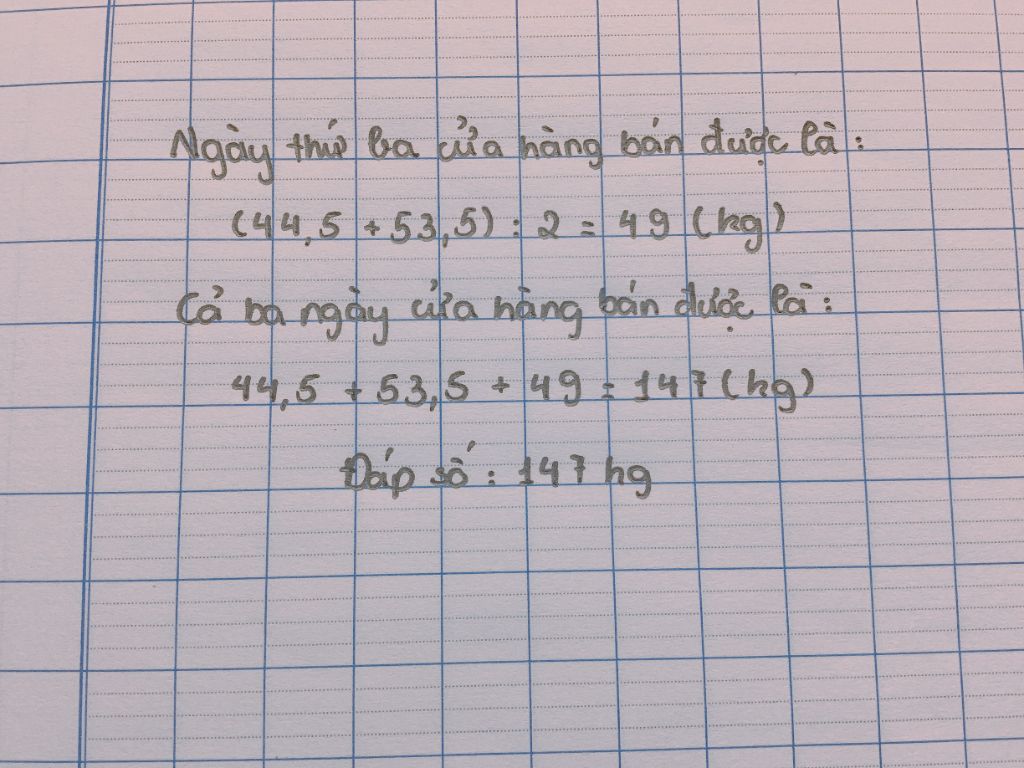 Ngày thứ ba cửa hàng bán được là:
(44,5 + 53,5) : 2 = 49 (kg)
Cả ba ngày cửa hàng bán được là:
44,5 + 53,5 + 49 = 147 (kg)
Đáp số : 147 kg